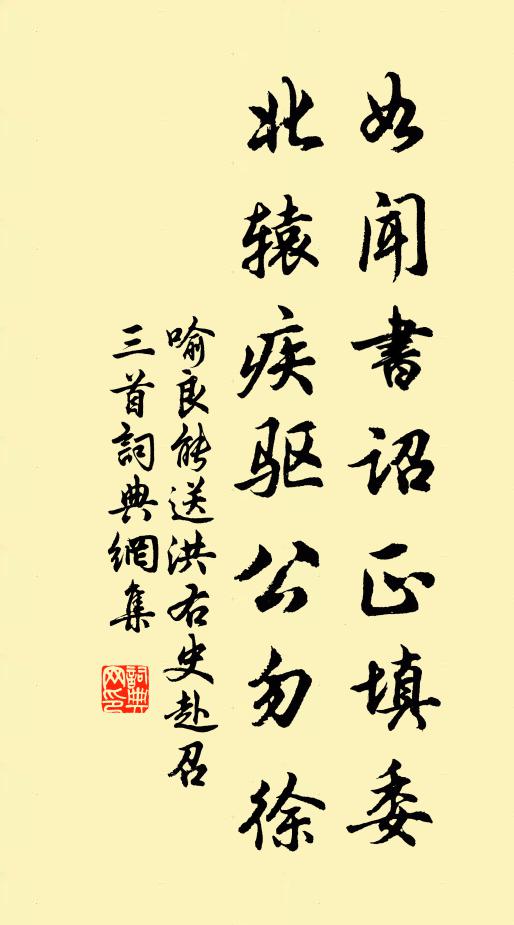 如闻書诏正填委
北辕疾驱公勿徐
喻良能送洪右史赴召
三首詞典網集
詞典
网印